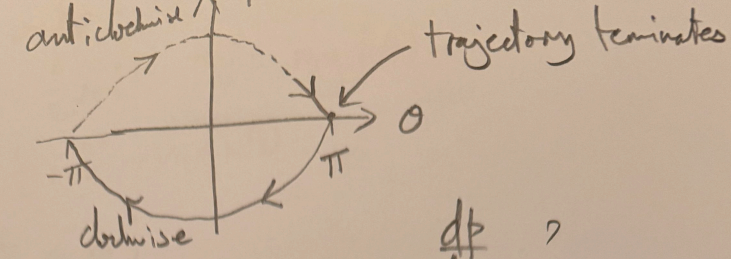 anticlockwise
trajectory teminates
θ
-π
π
clockwise
dp